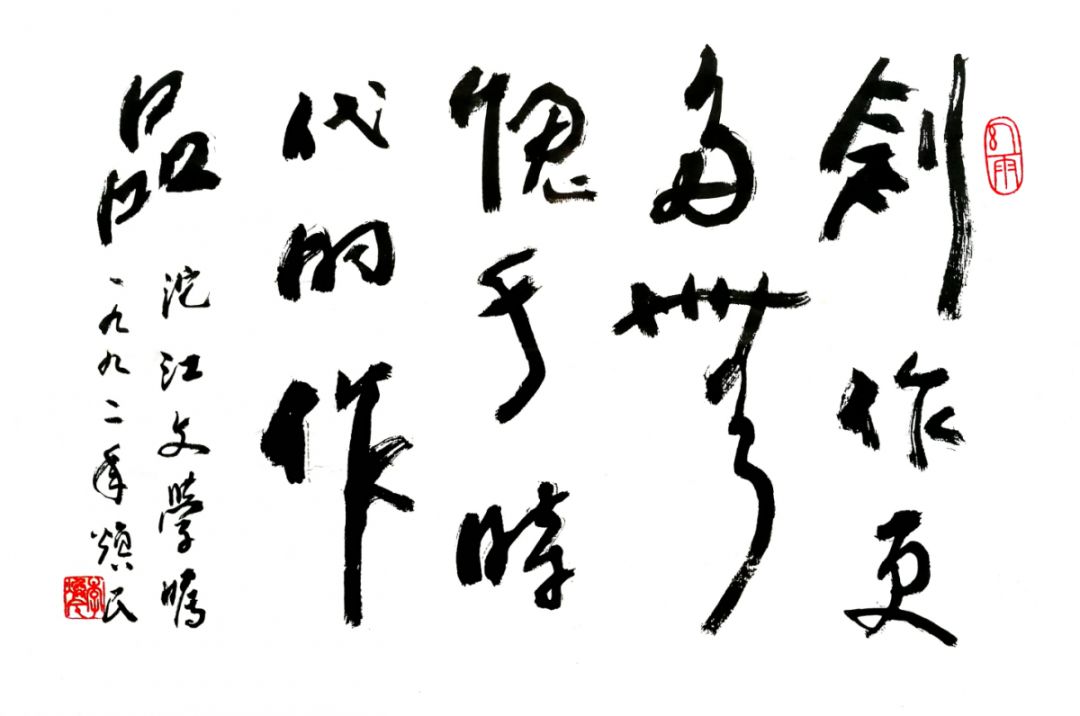 創作更
多無
愧乎時
代的作
品
沱江文學嘱
一九九二年 焕民